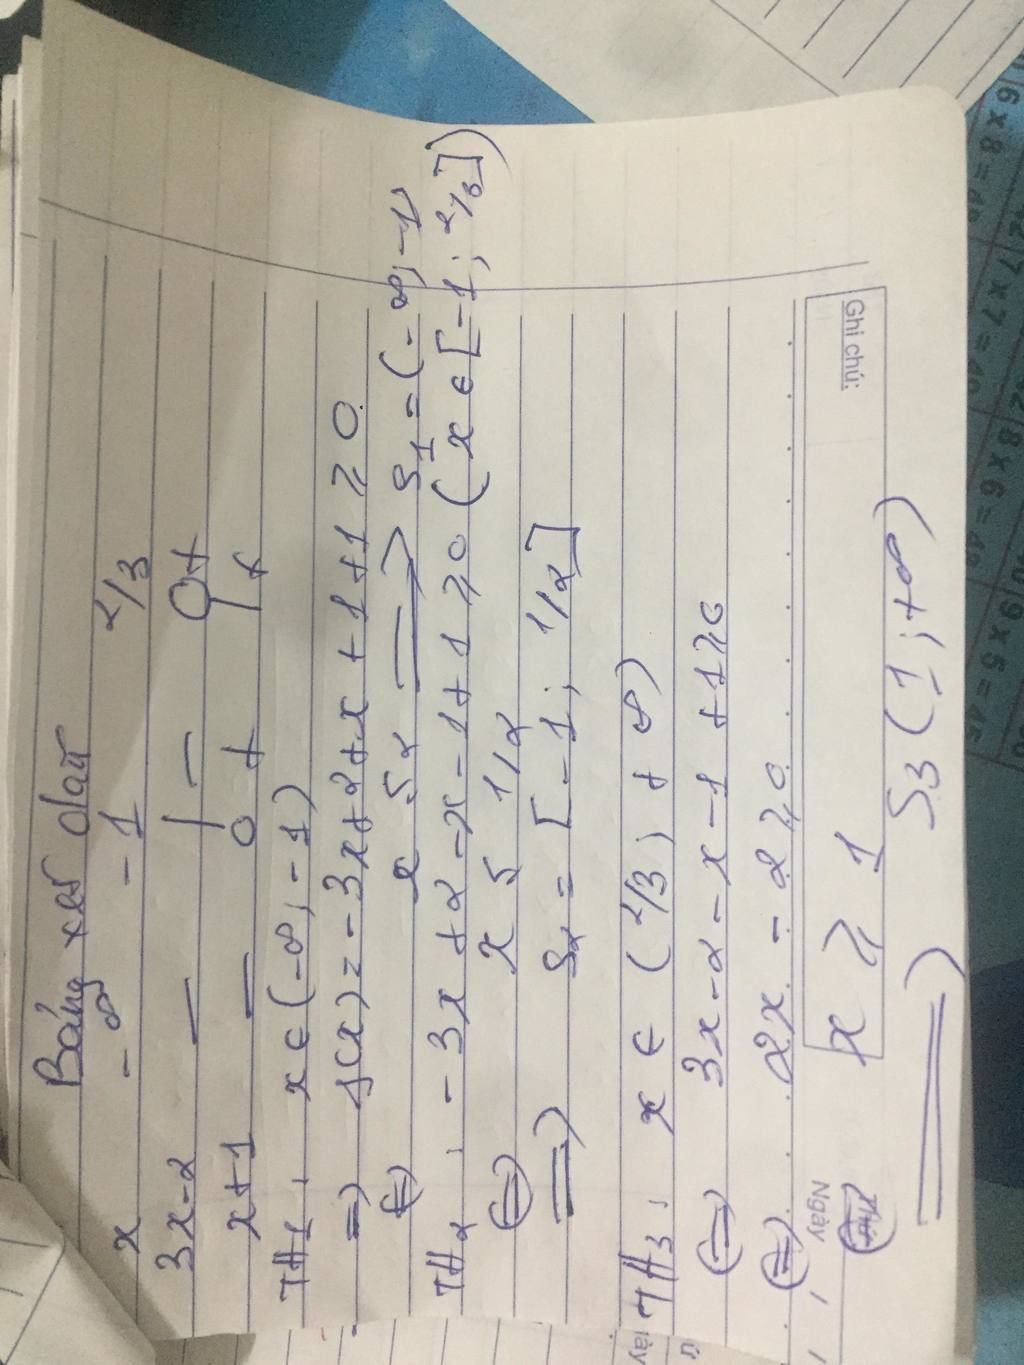 Bảng xét dấu
x -∞ -1 2/3
3x-2 - | - 0 +
x+1 - 0 + | +
TH1, x ∈ (-∞; -1)
=> f(x) = -3x+2+x+1+1 ≥ 0
(=) x ≤ 2 => S1 = (-∞; -1)
TH2, -3x+2-x-1+1 ≥ 0 (x ∈ [-1; 2/3])
(=) x ≤ 1/2
=> S2 = [-1; 1/2]
TH3, x ∈ (2/3; +∞)
(=) 3x-2-x-1+1 ≥ 0
(=) 2x-2 ≥ 0
Ghi chú:
Ngày
x ≥ 1
=> S3 (1; +∞)
6 x 8 = 48
7 x 7 = 49
8 x 6 = 48
9 x 5 = 45